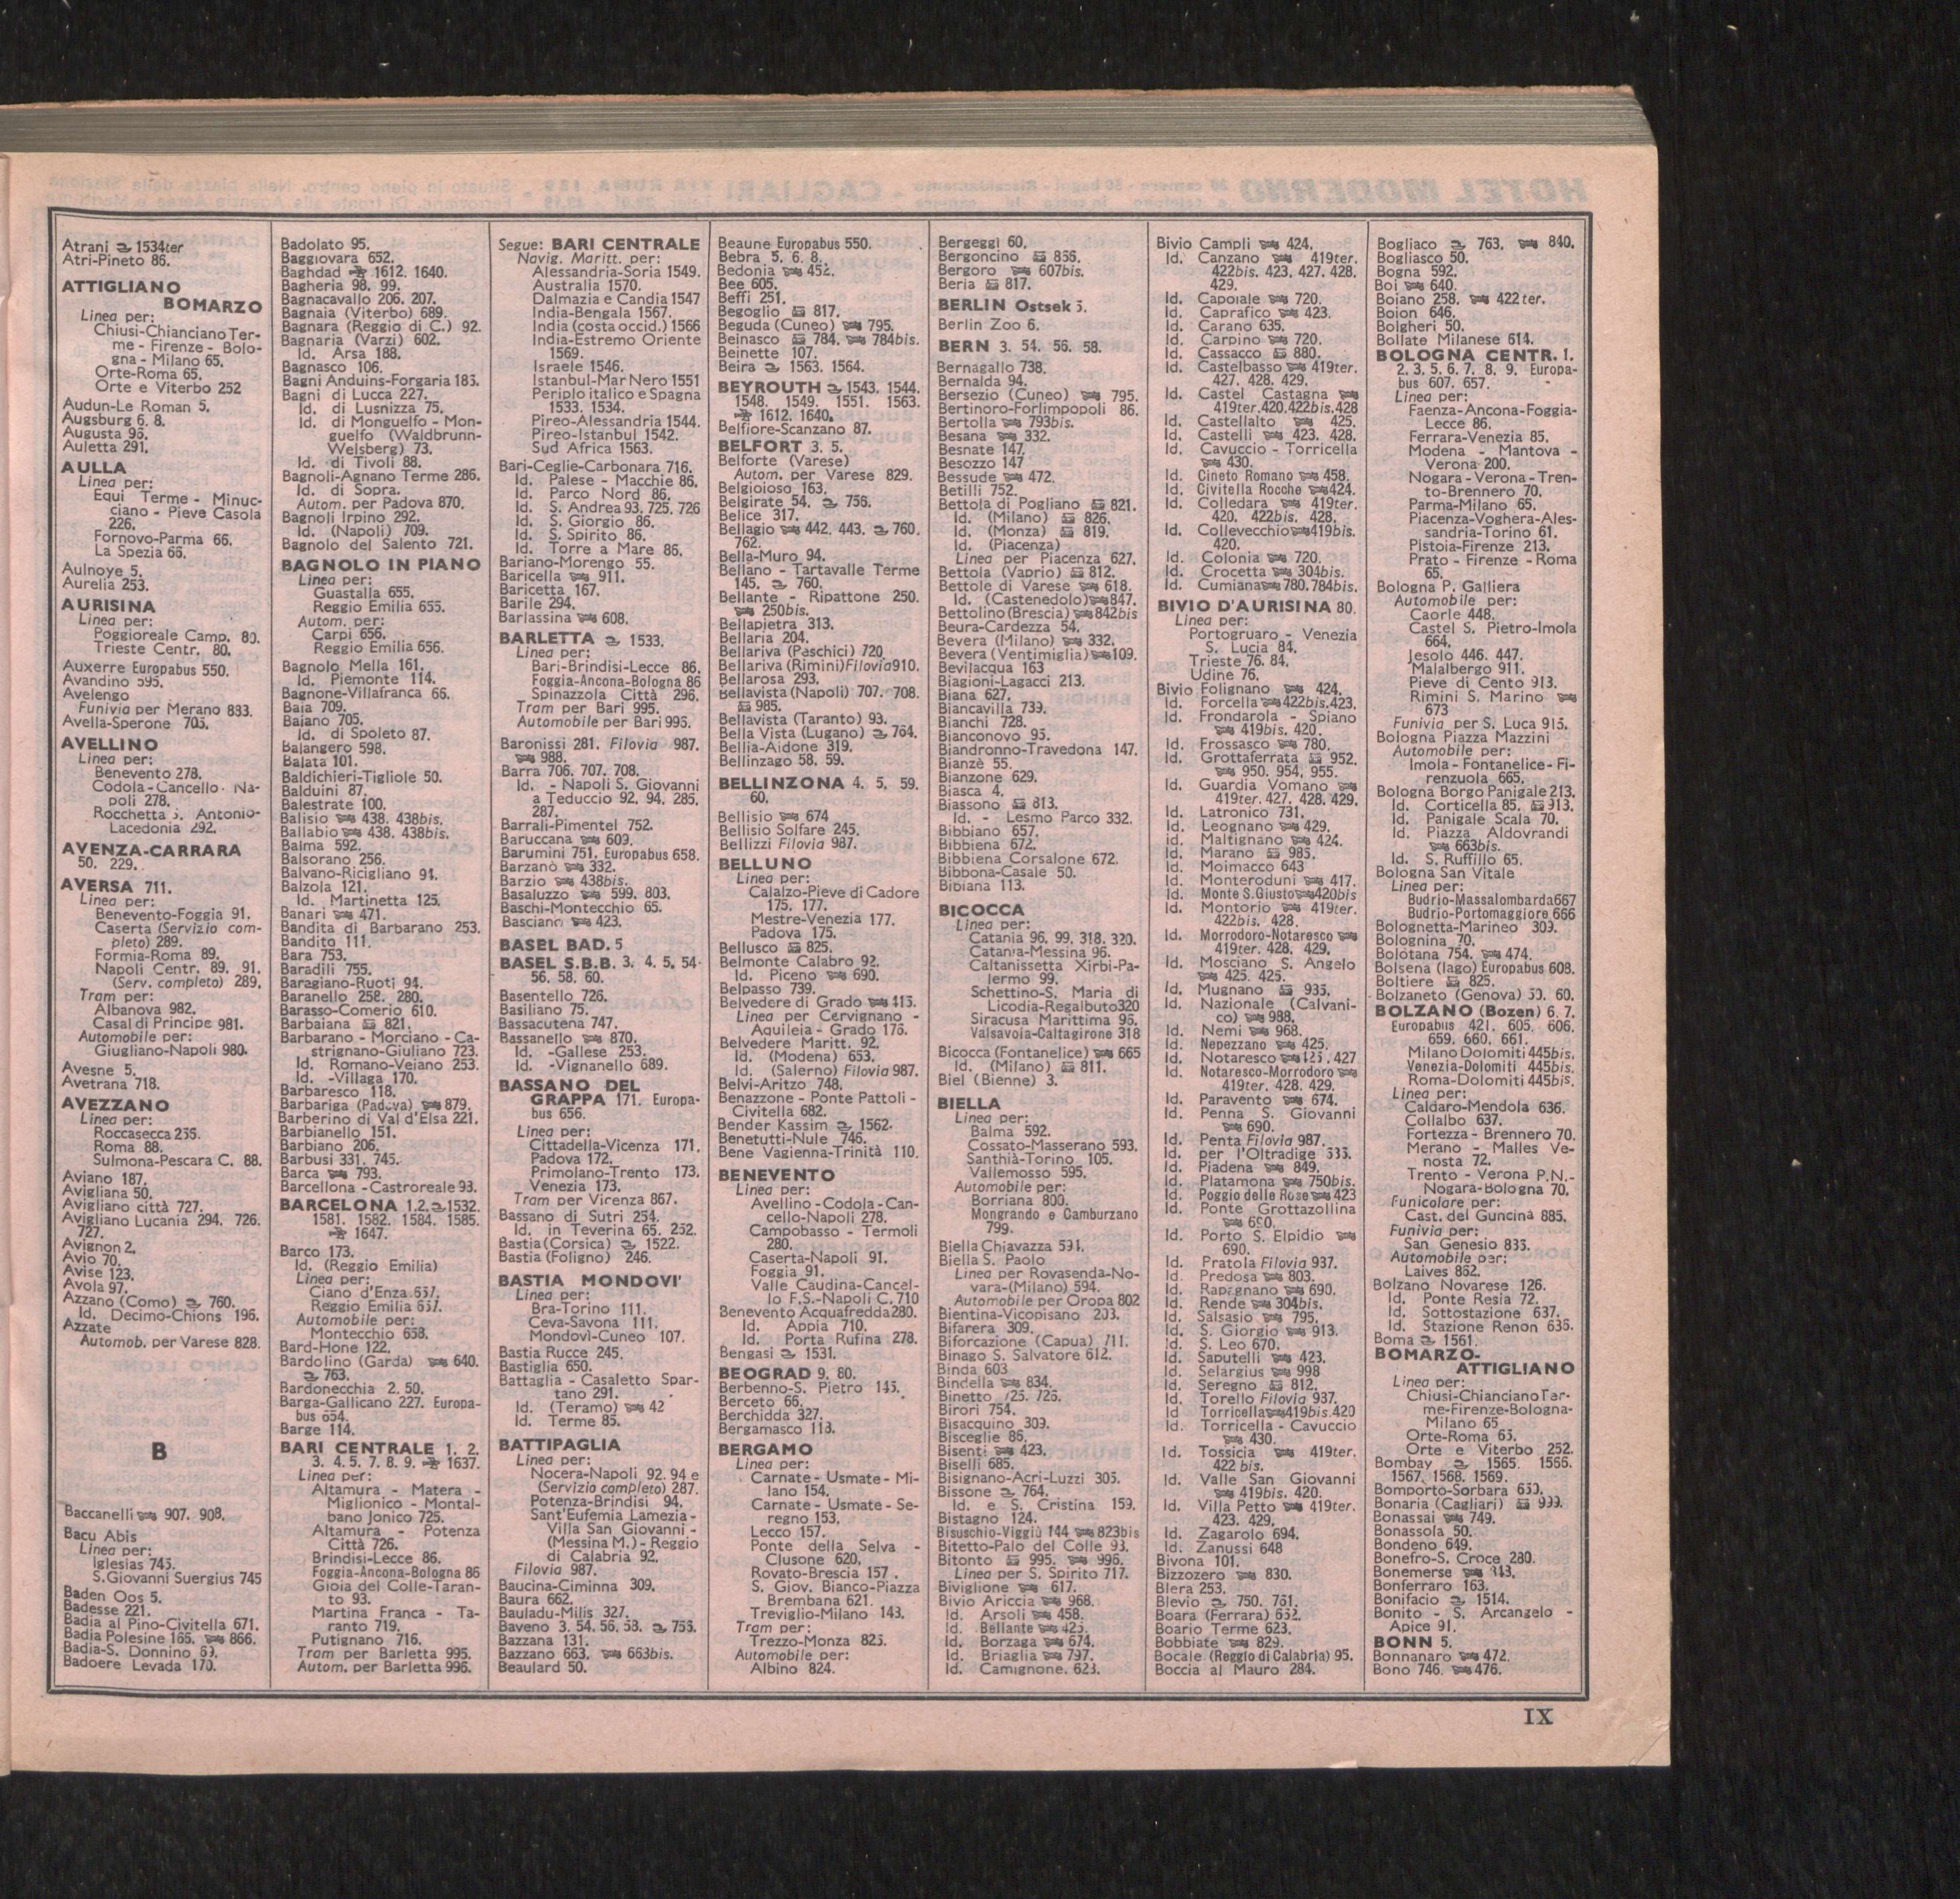 Atrani 1534ter
Atri-Pineto 86.
ATTIGLIANO
BOMARZO
Linea per:
Chiusi-Chianciano Ter-
me - Firenze - Bolo-
gna - Milano 65.
Orte-Roma 65.
Orte e Viterbo 252
Audun-Le Roman 5.
Augsburg 6. 8.
Augusta 95.
Auletta 291.
AULLA
Linea per:
Equi Terme - Minuc-
ciano - Pieve Casola
226.
Fornovo-Parma 66.
La Spezia 66.
Aulnoye 5.
Aurelia 253.
AURISINA
Linea per:
Poggioreale Camp. 80.
Trieste Centr. 80.
Auxerre Europabus 550.
Avandino 595.
Avelengo
Funivia per Merano 833.
Avella-Sperone 705.
AVELLINO
Linea per:
Benevento 278.
Codola-Cancello- Na-
poli 278.
Rocchetta S. Antonio-
Lacedonia 292.
AVENZA-CARRARA
50. 229.
AVERSA 711.
Linea per:
Benevento-Foggia 91.
Caserta (Servizio com-
pleto) 289.
Formia-Roma 89.
Napoli Centr. 89. 91.
(Serv. completo) 289.
Tram per:
Albanova 982.
Casal di Principe 981.
Automobile per:
Giugliano-Napoli 980.
Avesne 5.
Avetrana 718.
AVEZZANO
Linea per:
Roccasecca 255.
Roma 88.
Sulmona-Pescara C. 88.
Aviano 187.
Avigliana 50.
Avigliano città 727.
Avigliano Lucania 294. 726.
727.
Avignon 2.
Avio 70.
Avise 123.
Avola 97.
Azzano (Como) 760.
Id. Decimo-Chions 196.
Azzate
Automob. per Varese 828.
B
Baccanelli 907. 908.
Bacu Abis
Linea per:
Iglesias 745.
S.Giovanni Suergius 745
Baden Oos 5.
Badesse 221.
Badia al Pino-Civitella 671.
Badia Polesine 165. 866.
Badia-S. Donnino 69.
Badoere Levada 170.
Badolato 95.
Baggiovara 652.
Baghdad 1612. 1640.
Bagheria 98. 99.
Bagnacavallo 206. 207.
Bagnaia (Viterbo) 689.
Bagnara (Reggio di C.) 92.
Bagnaria (Varzi) 602.
Id. Arsa 188.
Bagnasco 106.
Bagni Anduins-Forgaria 185.
Bagni di Lucca 227.
Id. di Lusnizza 75.
Id. di Monguelfo - Mon-
guelfo (Waldbrunn-
Welsberg) 73.
Id. di Tivoli 88.
Bagnoli-Agnano Terme 286.
Id. di Sopra.
Autom. per Padova 870.
Bagnoli Irpino 292.
Id. (Napoli) 709.
Bagnolo del Salento 721.
BAGNOLO IN PIANO
Linea per:
Guastalla 655.
Reggio Emilia 655.
Autom. per:
Carpi 656.
Reggio Emilia 656.
Bagnolo Mella 161.
Id. Piemonte 114.
Bagnone-Villafranca 66.
Baia 709.
Baiano 705.
Id. di Spoleto 87.
Balangero 598.
Balata 101.
Baldichieri-Tigliole 50.
Balduini 87.
Balestrate 100.
Balisio 438. 438bis.
Ballabio 438. 438bis.
Balma 592.
Balsorano 256.
Balvano-Ricigliano 94.
Balzola 121.
Id. Martinetta 125.
Banari 471.
Bandita di Barbarano 253.
Bandito 111.
Bara 753.
Baradili 755.
Baragiano-Ruoti 94.
Baranello 258. 280.
Barasso-Comerio 610.
Barbaiana 821.
Barbarano - Morciano - Ca-
strignano-Giuliano 723.
Id. Romano-Veiano 253.
Id. -Villaga 170.
Barbaresco 118.
Barbariga (Padova) 879.
Barberino di Val d'Elsa 221.
Barbianello 151.
Barbiano 206.
Barbusi 331. 745.
Barca 793.
Barcellona - Castroreale 93.
BARCELONA 1.2. 1532.
1581. 1582. 1584. 1585.
1647.
Barco 173.
Id. (Reggio Emilia)
Linea per:
Ciano d'Enza 657.
Reggio Emilia 657.
Automobile per:
Montecchio 658.
Bard-Hone 122.
Bardolino (Garda) 640.
763.
Bardonecchia 2. 50.
Barga-Gallicano 227. Europa-
bus 654.
Barge 114.
BARI CENTRALE 1. 2.
3. 4. 5. 7. 8. 9. 1637.
Linea per:
Altamura - Matera -
Miglionico - Montal-
bano Jonico 725.
Altamura - Potenza
Città 726.
Brindisi-Lecce 86.
Foggia-Ancona-Bologna 86
Gioia del Colle-Taran-
to 93.
Martina Franca - Ta-
ranto 719.
Putignano 716.
Tram per Barletta 995.
Autom. per Barletta 996.
Segue: BARI CENTRALE
Navig. Maritt. per:
Alessandria-Soria 1549.
Australia 1570.
Dalmazia e Candia 1547
India-Bengala 1567.
India (costa occid.) 1566
India-Estremo Oriente
1569.
Israele 1546.
Istanbul-Mar Nero 1551
Periplo italico e Spagna
1533. 1534.
Pireo-Alessandria 1544.
Pireo-Istanbul 1542.
Sud Africa 1563.
Bari-Ceglie-Carbonara 716.
Id. Palese - Macchie 86.
Id. Parco Nord 86.
Id. S. Andrea 93. 725. 726
Id. S. Giorgio 86.
Id. S. Spirito 86.
Id. Torre a Mare 86.
Bariano-Morengo 55.
Baricella 911.
Baricetta 167.
Barile 294.
Barlassina 608.
BARLETTA 1533.
Linea per:
Bari-Brindisi-Lecce 86.
Foggia-Ancona-Bologna 86
Spinazzola Città 296.
Tram per Bari 995.
Automobile per Bari 996.
Baronissi 281. Filovia 987.
988.
Barra 706. 707. 708.
Id. - Napoli S. Giovanni
a Teduccio 92. 94. 285.
287.
Barrali-Pimentel 752.
Baruccana 609.
Barumini 751. Europabus 658.
Barzanò 332.
Barzio 438bis.
Basaluzzo 599. 803.
Baschi-Montecchio 65.
Basciano 423.
BASEL BAD. 5
BASEL S.B.B. 3. 4. 5. 54-
56. 58. 60.
Basentello 726.
Basiliano 75.
Bassacutena 747.
Bassanello 870.
Id. -Gallese 253.
Id. -Vignanello 689.
BASSANO DEL
GRAPPA 171. Europa-
bus 656.
Linea per:
Cittadella-Vicenza 171.
Padova 172.
Primolano-Trento 173.
Venezia 173.
Tram per Vicenza 867.
Bassano di Sutri 254.
Id. in Teverina 65. 252.
Bastia (Corsica) 1522.
Bastia (Foligno) 246.
BASTIA MONDOVI'
Linea per:
Bra-Torino 111.
Ceva-Savona 111.
Mondovì-Cuneo 107.
Bastia Rucce 245.
Bastiglia 650.
Battaglia - Casaletto Spar-
tano 291.
Id. (Teramo) 42
Id. Terme 85.
BATTIPAGLIA
Linea per:
Nocera-Napoli 92. 94 e
(Servizio completo) 287.
Potenza-Brindisi 94.
Sant'Eufemia Lamezia -
Villa San Giovanni -
(Messina M.) - Reggio
di Calabria 92.
Filovia 987.
Baucina-Ciminna 309.
Baura 662.
Bauladu-Milis 327.
Baveno 3. 54. 56. 58. 755.
Bazzana 131.
Bazzano 663. 663bis.
Beaulard 50.
Beaune Europabus 550.
Bebra 5. 6. 8.
Bedonia 452.
Bee 605.
Beffi 251.
Begoglio 817.
Beguda (Cuneo) 795.
Beinasco 784. 784bis.
Beinette 107.
Beira 1563. 1564.
BEYROUTH 1543. 1544.
1548. 1549. 1551. 1563.
1612. 1640.
Belfiore-Scanzano 87.
BELFORT 3. 5.
Belforte (Varese)
Autom. per Varese 829.
Belgioioso 163.
Belgirate 54. 756.
Belice 317.
Bellagio 442. 443. 760.
762.
Bella-Muro 94.
Bellano - Tartavalle Terme
145. 760.
Bellante - Ripattone 250.
250bis.
Bellapietra 313.
Bellaria 204.
Bellariva (Peschici) 720
Bellariva (Rimini) Filovia 910.
Bellarosa 293.
Bellavista (Napoli) 707. 708.
985.
Bellavista (Taranto) 93.
Bella Vista (Lugano) 764.
Bellia-Aidone 319.
Bellinzago 58. 59.
BELLINZONA 4. 5. 59.
60.
Bellisio 674
Bellisio Solfare 245.
Bellizzi Filovia 987.
BELLUNO
Linea per:
Calalzo-Pieve di Cadore
175. 177.
Mestre-Venezia 177.
Padova 175.
Bellusco 825.
Belmonte Calabro 92.
Id. Piceno 690.
Belpasso 739.
Belvedere di Grado 415.
Linea per Cervignano -
Aquileia - Grado 176.
Belvedere Maritt. 92.
Id. (Modena) 653.
Id. (Salerno) Filovia 987.
Belvi-Aritzo 748.
Benazzone - Ponte Pattoli -
Civitella 682.
Bender Kassim 1562.
Benetutti-Nule 746.
Bene Vagienna-Trinità 110.
BENEVENTO
Linea per:
Avellino - Codola - Can-
cello-Napoli 278.
Campobasso - Termoli
280.
Caserta-Napoli 91.
Foggia 91.
Valle Caudina-Cancel-
lo F.S.-Napoli C. 710
Benevento Acquafredda 280.
Id. Appia 710.
Id. Porta Rufina 278.
Bengasi 1531.
BEOGRAD 9. 80.
Berbenno-S. Pietro 145.
Berceto 66.
Berchidda 327.
Bergamasco 113.
BERGAMO
Linea per:
Carnate - Usmate - Mi-
lano 154.
Carnate - Usmate - Se-
regno 153.
Lecco 157.
Ponte della Selva -
Clusone 620.
Rovato-Brescia 157.
S. Giov. Bianco-Piazza
Brembana 621.
Treviglio-Milano 143.
Tram per:
Trezzo-Monza 825.
Automobile per:
Albino 824.
Bergeggi 60.
Bergoncino 856.
Bergoro 607bis.
Beria 817.
BERLIN Ostsek 5.
Berlin Zoo 6.
BERN 3. 54. 56. 58.
Bernagallo 738.
Bernalda 94.
Bersezio (Cuneo) 795.
Bertinoro-Forlimpopoli 86.
Bertolla 793bis.
Besana 332.
Besnate 147.
Besozzo 147
Bessude 472.
Betilli 752.
Bettola di Pogliano 821.
Id. (Milano) 826.
Id. (Monza) 819.
Id. (Piacenza)
Linea per Piacenza 627.
Bettola (Vaprio) 812.
Bettole di Varese 618.
Id. (Castenedolo) 847.
Bettolino (Brescia) 842bis
Beura-Cardezza 54.
Bevera (Milano) 332.
Bevera (Ventimiglia) 109.
Bevilacqua 163
Biagioni-Lagacci 213.
Biana 627.
Biancavilla 739.
Bianchi 728.
Bianconovo 95.
Biandronno-Travedona 147.
Bianzè 55.
Bianzone 629.
Biasca 4.
Biassono 813.
Id. - Lesmo Parco 332.
Bibbiano 657.
Bibbiena 672.
Bibbiena Corsalone 672.
Bibbona-Casale 50.
Bibiana 113.
BICOCCA
Linea per:
Catania 96. 99. 318. 320.
Catania-Messina 96.
Caltanissetta Xirbi-Pa-
lermo 99.
Schettino-S. Maria di
Licodia-Regalbuto 320
Siracusa Marittima 96.
Valsavoia-Caltagirone 318
Bicocca (Fontanelice) 665
Id. (Milano) 811.
Biel (Bienne) 3.
BIELLA
Linea per:
Balma 592.
Cossato-Masserano 593.
Santhià-Torino 105.
Vallemosso 595.
Automobile per:
Borriana 800.
Mongrando e Camburzano
799.
Biella Chiavazza 591.
Biella S. Paolo
Linea per Rovasenda-No-
vara-(Milano) 594.
Automobile per Oropa 802
Bientina-Vicopisano 203.
Bifarera 309.
Biforcazione (Capua) 711.
Binago S. Salvatore 612.
Binda 603
Bindella 834.
Binetto 725. 726.
Birori 754.
Bisacquino 309.
Bisceglie 86.
Bisenti 423.
Biselli 685.
Bisignano-Acri-Luzzi 305.
Bissone 764.
Id. e S. Cristina 159.
Bistagno 124.
Bisuschio-Viggiù 144 823bis
Bitetto-Palo del Colle 93.
Bitonto 995. 996.
Linea per S. Spirito 717.
Biviglione 617.
Bivio Ariccia 968.
Id. Arsoli 458.
Id. Bellante 425.
Id. Borzaga 674.
Id. Briaglia 797.
Id. Camignone. 623.
Bivio Campli 424.
Id. Canzano 419ter.
422bis. 423. 427. 428.
429.
Id. Capoiale 720.
Id. Caprafico 423.
Id. Carano 635.
Id. Carpino 720.
Id. Cassacco 880.
Id. Castelbasso 419ter.
427. 428. 429.
Id. Castel Castagna
419ter.420.422bis.428
Id. Castellalto 425.
Id. Castelli 423. 428.
Id. Cavuccio - Torricella
430.
Id. Cineto Romano 458.
Id. Civitella Rocche 424.
Id. Colledara 419ter.
420. 422bis. 428.
Id. Collevecchio 419bis.
420.
Id. Colonia 720.
Id. Crocetta 304bis.
Id. Cumiana 780.784bis.
BIVIO D'AURISINA 80.
Linea per:
Portogruaro - Venezia
S. Lucia 84.
Trieste 76. 84.
Udine 76.
Bivio Folignano 424.
Id. Forcella 422bis.423.
Id. Frondarola - Spiano
419bis. 420.
Id. Frossasco 780.
Id. Grottaferrata 952.
950. 954. 955.
Id. Guardia Vomano
419ter. 427. 428. 429.
Id. Latronico 731.
Id. Leognano 429.
Id. Maltignano 424.
Id. Marano 985.
Id. Moimacco 643
Id. Monteroduni 417.
Id. Monte S.Giusto 420bis
Id. Montorio 419ter.
422bis. 428.
Id. Morrodoro-Notaresco
419ter. 428. 429.
Id. Mosciano S. Angelo
425. 425.
Id. Mugnano 935.
Id. Nazionale (Calvani-
co) 988.
Id. Nemi 968.
Id. Nepezzano 425.
Id. Notaresco 425. 427
Id. Notaresco-Morrodoro
419ter. 428. 429.
Id. Paravento 674.
Id. Penna S. Giovanni
690.
Id. Penta Filovia 987.
Id. per l'Oltradige 535.
Id. Piadena 849.
Id. Platamona 750bis.
Id. Poggio delle Rose 423
Id. Ponte Grottazzolina
690.
Id. Porto S. Elpidio
690.
Id. Pratola Filovia 937.
Id. Predosa 803.
Id. Rapagnano 690.
Id. Rende 304bis.
Id. Salsasio 795.
Id. S. Giorgio 913.
Id. S. Leo 670.
Id. Saputelli 423.
Id. Selargius 998
Id. Seregno 812.
Id. Torello Filovia 937.
Id. Torricella 419bis.420
Id. Torricella - Cavuccio
430.
Id. Tossicia 419ter.
422 bis.
Id. Valle San Giovanni
419bis. 420.
Id. Villa Petto 419ter.
423. 429.
Id. Zagarolo 694.
Id. Zanussi 648
Bivona 101.
Bizzozero 830.
Blera 253.
Blevio 750. 761.
Boara (Ferrara) 652.
Boario Terme 623.
Bobbiate 829.
Bocale (Reggio di Calabria) 95.
Boccia al Mauro 284.
Bogliaco 763. 840.
Bogliasco 50.
Bogna 592.
Boi 640.
Boiano 258. 422 ter.
Boion 646.
Bolgheri 50.
Bollate Milanese 614.
BOLOGNA CENTR. 1.
2. 3. 5. 6. 7. 8. 9. Europa-
bus 607. 657.
Linea per:
Faenza-Ancona-Foggia-
Lecce 86.
Ferrara-Venezia 85.
Modena - Mantova -
Verona 200.
Nogara - Verona - Tren-
to-Brennero 70.
Parma-Milano 65.
Piacenza-Voghera-Ales-
sandria-Torino 61.
Pistoia-Firenze 213.
Prato - Firenze - Roma
65.
Bologna P. Galliera
Automobile per:
Caorle 448.
Castel S. Pietro-Imola
664.
Jesolo 446. 447.
Malalbergo 911.
Pieve di Cento 913.
Rimini S. Marino
673
Funivia per S. Luca 915.
Bologna Piazza Mazzini
Automobile per:
Imola - Fontanelice - Fi-
renzuola 665.
Bologna Borgo Panigale 213.
Id. Corticella 85. 913.
Id. Panigale Scala 70.
Id. Piazza Aldovrandi
663bis.
Id. S. Ruffillo 65.
Bologna San Vitale
Linea per:
Budrio-Massalombarda 667
Budrio-Portomaggiore 666
Bolognetta-Marineo 309.
Bolognina 70.
Bolotana 754. 474.
Bolsena (lago) Europabus 608.
Boltiere 825.
Bolzaneto (Genova) 50. 60.
BOLZANO (Bozen) 6. 7.
Europabus 421. 605. 606.
659. 660. 661.
Milano Dolomiti 445bis.
Venezia-Dolomiti 445bis.
Roma-Dolomiti 445bis.
Linea per:
Caldaro-Mendola 636.
Collalbo 637.
Fortezza - Brennero 70.
Merano - Malles Ve-
nosta 72.
Trento - Verona P.N.-
Nogara-Bologna 70.
Funicolare per:
Cast. del Guncina 885.
Funivia per:
San Genesio 835.
Automobile per:
Laives 862.
Bolzano Novarese 126.
Id. Ponte Resia 72.
Id. Sottostazione 637.
Id. Stazione Renon 636.
Boma 1561.
BOMARZO-
ATTIGLIANO
Linea per:
Chiusi-Chianciano Ter-
me-Firenze-Bologna-
Milano 65
Orte-Roma 65.
Orte e Viterbo 252.
Bombay 1565. 1566.
1567. 1568. 1569.
Bomporto-Sorbara 650.
Bonaria (Cagliari) 999.
Bonassai 749.
Bonassola 50.
Bondeno 649.
Bonefro-S. Croce 280.
Bonemerse 843.
Bonferraro 163.
Bonifacio 1514.
Bonito - S. Arcangelo -
Apice 91.
BONN 5.
Bonnanaro 472.
Bono 746. 476.
IX